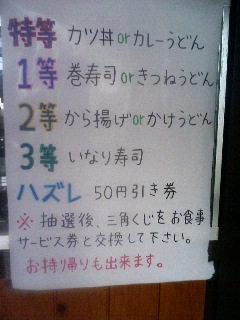 特等 カツ丼orカレーうどん
1等 巻寿司orきつねうどん
2等 から揚げorかけうどん
3等 いなり寿司
ハズレ 50円引き券
※ 抽選後、三角くじをお食事
サービス券と交換して下さい。
お持り帰りも出来ます。